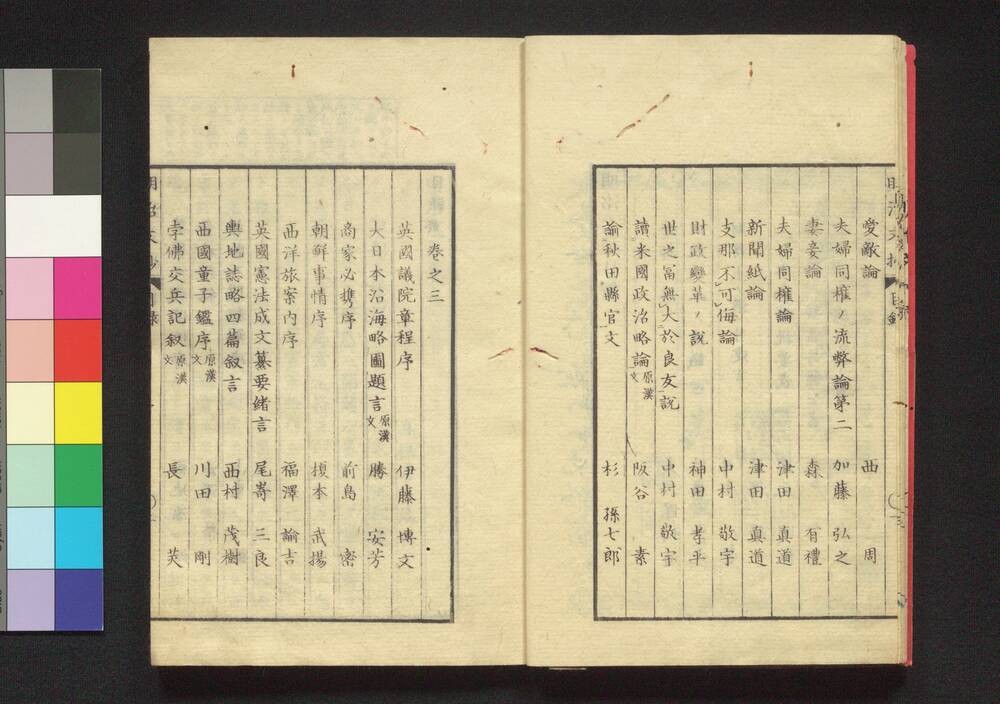 愛敵論 西 周
夫婦同權ノ流弊論第二 加藤 弘之
妻妾論 森 有禮
夫婦同權論 津田 眞道
新聞紙論 津田 眞道
支那不可侮論 中村 敬宇
財政變革ノ説 神田 孝平
世之富無大於良友説 中村 敬宇
讀米國政治略論 原漢文 阪谷 素
諭秋田縣官文 杉 孫七郎
巻之三
英國議院章程序 伊藤 博文
大日本沿海略圖題言 原漢文 勝 安芳
商家必携序 前島 密
朝鮮事情序 榎本 武揚
西洋旅案内序 福澤 諭吉
英國憲法成文纂要緒言 尾嵜 三良
輿地誌略四篇叙言 西村 茂樹
西國童子鑑序 原漢文 川田 剛
孛佛交兵記叙 原漢文 長 芡
明治文抄 目錄